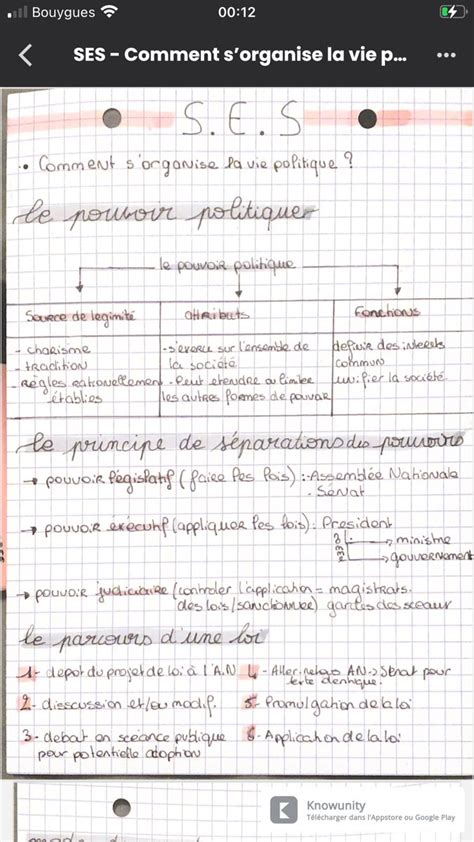 Bouygues 00:12
SES - Comment s'organise la vie p...
S.E.S
• Comment s'organise la vie politique ?
le pouvoir politique
le pouvoir politique
Source de legimité attributs Fonctions
- charisme
- tradition
- Règles rationellement établies
- s'exerce sur l'ensemble de
la société
- Peut étendre ou limiter
les autres formes de pouvoir
definir des interets
commun
unifier la société.
le principe de séparations des pouvoirs
→ pouvoir législatif (faire les lois) : - Assemblée Nationale
- Sénat
→ pouvoir éxécutif (appliquer les lois) : President
→ ministre
→ gouvernement
→ pouvoir judiciaire (controler l'application = magistrats.
des lois/sanctionner) gardes des sceaux
le parcours d'une loi
1- depot du projet de loi à l'A.N 4- Aller-retour AN → Sénat pour
texte identique.
2- disscussion et/ou modif. 5- Promulgation de la loi
3- debat en scéance publique 6- Application de la loi
pour potentielle adoption
Knowunity
Télécharger dans l'Appstore ou Google Play